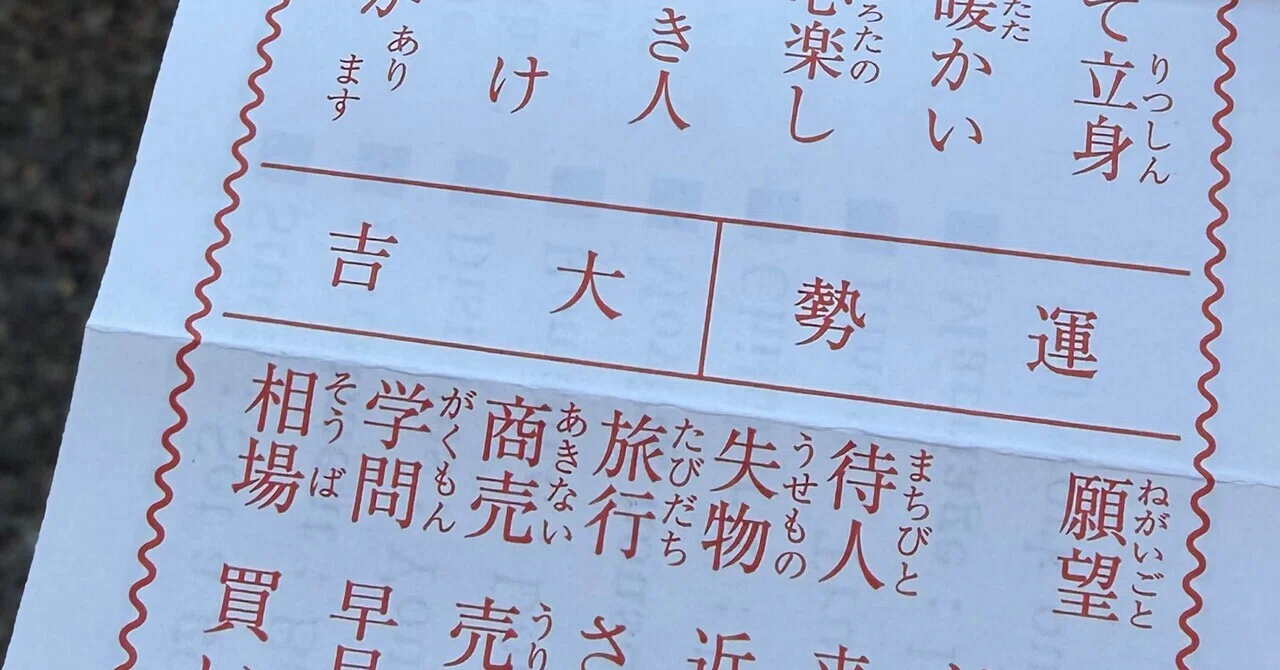 りつしん
て立身
たた
暖かい
ろたの
心楽し
き人
け
が あります
運勢 大吉
ねがいごと
願望
まちびと
待人 来
うせもの
失物 近
たびだち
旅行 さ
あきない うり
商売 売
がくもん
学問 早
そうば
相場 買